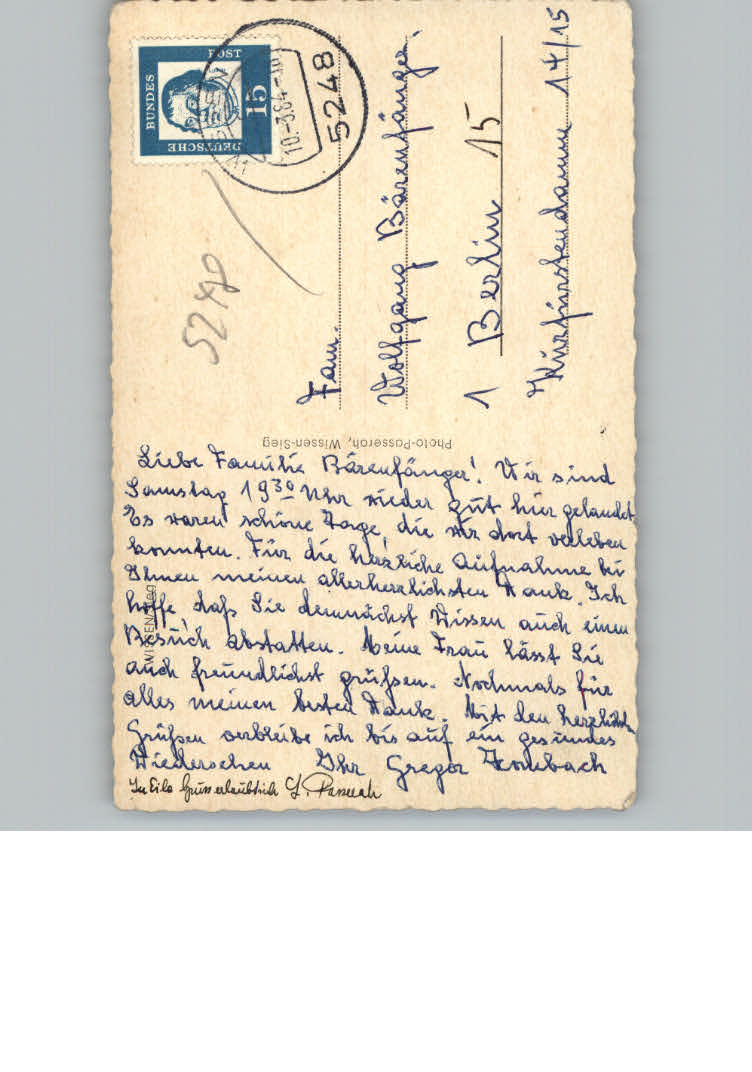 DEUTSCHE
BUNDES
POST
15
10.-3.64-
5248
5248
Fam.
Wolfgang Bärenfänger.
1 Berlin 15
Kurfürstendamm 14/15
Photo-Passerah, Wissen-Sieg
WISSEN/Sieg
Liebe Familie Bärenfänger! Wir sind
Samstag 19³⁰ Uhr wieder gut hier gelandet
Es waren schöne Tage, die wir dort verleben
konnten. Für die herzliche Aufnahme bei
Ihnen meinen allerherzlichsten Dank. Ich
hoffe daß Sie demnächst Wissen auch einen
Besuch abstatten. Meine Frau lässt Sie
auch freundlichst grüßen. Nochmals für
alles meinen besten Dank. Mit den herzlichsten
Grüßen verbleibe ich bis auf ein gesundes
Wiedersehen Ihr Gregor
In Eile